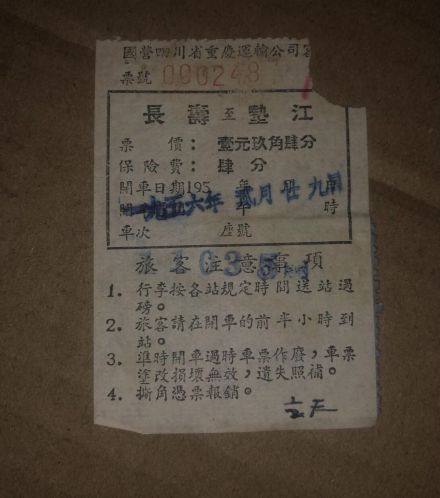 國營四川省重慶運輸公司客
票號 000248
長壽至墊江
票價：壹元玖角肆分
保險費：肆分
開車日期195 年 月 日
一九五六年 貳月 廿九日
開 午 時
車次 座號
旅客注意事項
035
1. 行李按各站規定時間送站過
磅。
2. 旅客請在開車的前半小時到
站。
3. 準時開車過時車票作廢，車票
塗改損壞無效，遺失照補。
4. 撕角憑票報銷。